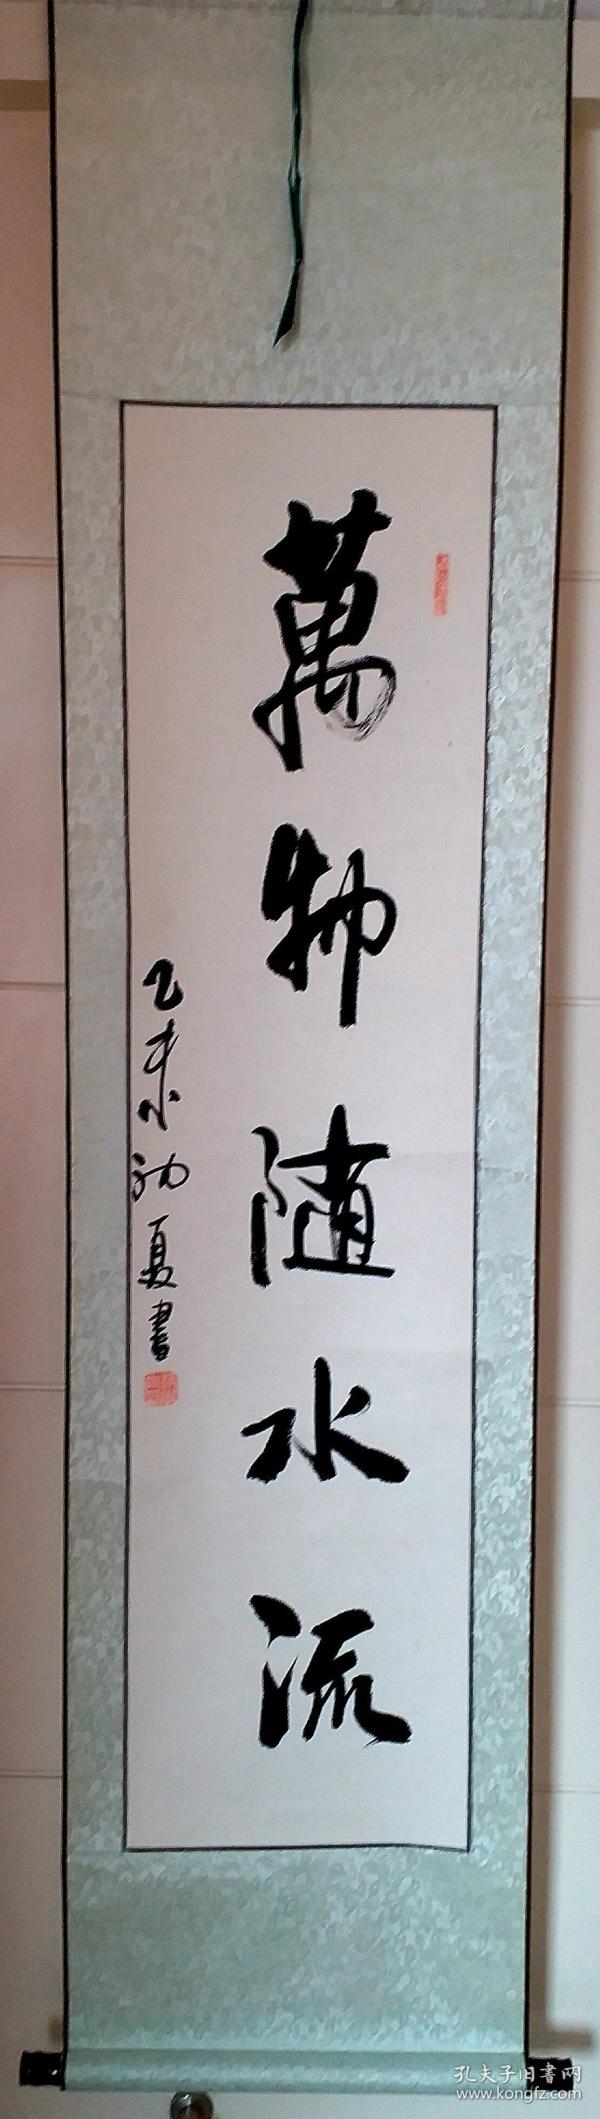 萬物隨水流
乙未初夏書
孔夫子旧書网
www.kongfz.com